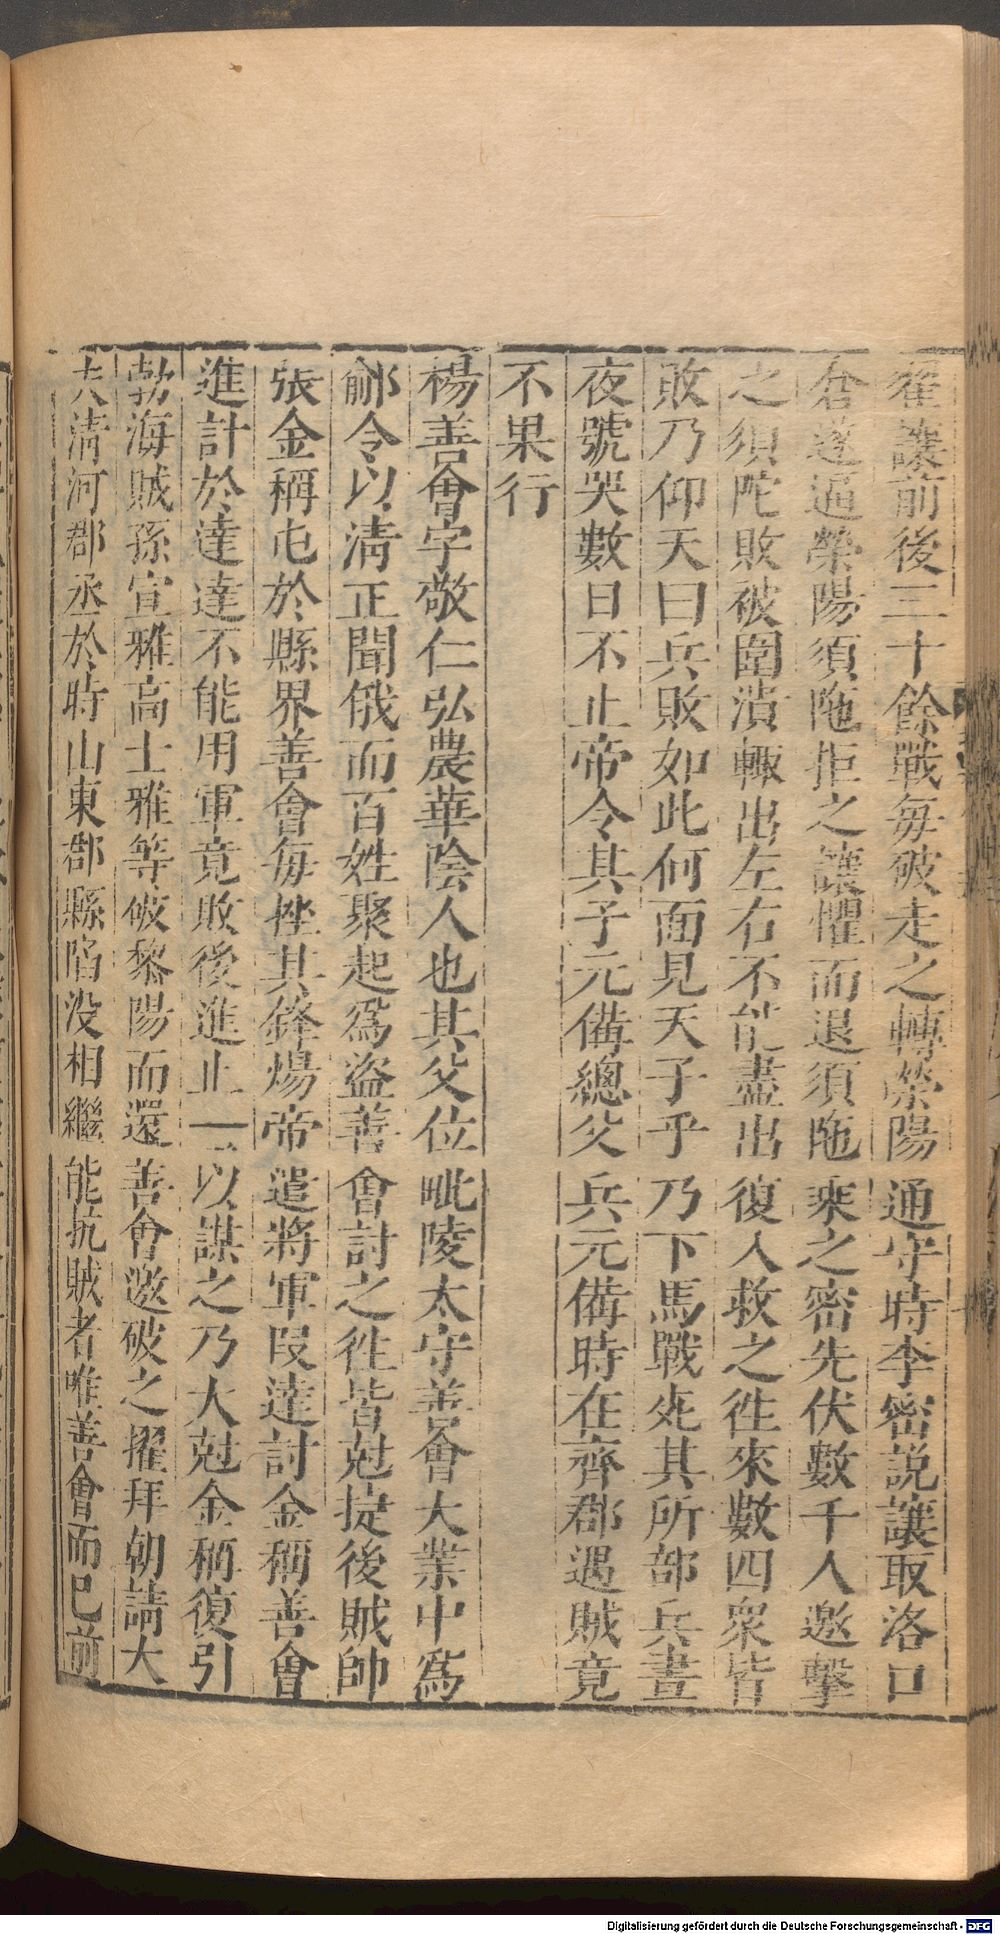 翟讓前後三十餘戰每破走之轉滎陽通守時李密說讓取洛口
倉遂逼滎陽須陁拒之讓懼而退須陁乘之密先伏數千人邀擊
之須陀敗被圍潰輙出左右不能盡出復入救之徃來數四衆皆
敗乃仰天曰兵敗如此何面見天子乎乃下馬戰死其所部兵晝
夜號哭數日不止帝令其子元備總父兵元備時在齊郡遇賊竟
不果行
楊善會字敬仁弘農華陰人也其父位毗陵太守善會大業中爲
鄃令以清正聞俄而百姓聚起爲盜善會討之徃皆尅㨗後賊帥
張金稱屯於縣界善會每挫其鋒煬帝遣將軍叚達討金稱善會
進計於達達不能用軍竟敗後進止一以謀之乃大尅金稱復引
勃海賊孫宣雅高士雅等破黎陽而還善會邀破之擢拜朝請大
夫清河郡丞於時山東郡縣陷没相繼能抗賊者唯善會而已前
Digitalisierung gefördert durch die Deutsche Forschungsgemeinschaft - DFG